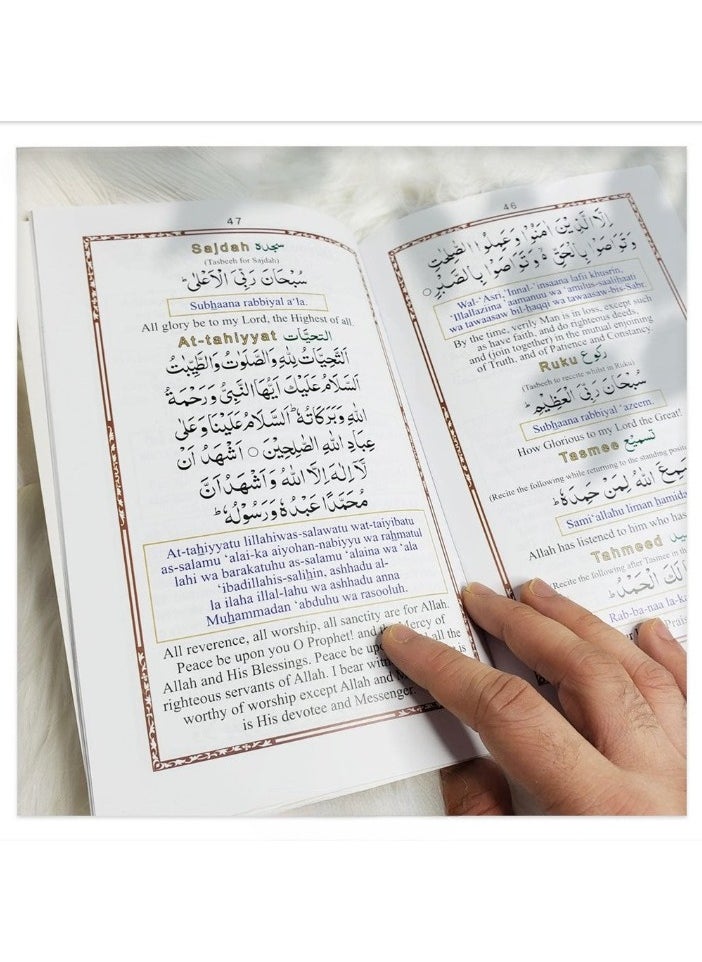 46
اِلَّا الَّذِيْنَ اٰمَنُوْا وَعَمِلُوا الصّٰلِحٰتِ
وَتَوَاصَوْا بِالْحَقِّ ۙ وَتَوَاصَوْا بِالصَّبْرِ ○
Wal-'Asri, 'Innal-'insaana lafii khusrin,
'Illallaziina 'aamanuu wa 'amulus-saalihaati
wa tawaasaw bil-haqqi wa tawaasaw-bis-Sabr.
By the time, verily Man is in loss, except such
as have faith, and do righteous deeds,
and (join together) in the mutual enjoining
of Truth, and of Patience and Constancy.
Ruku رکوع
(Tasbeeh to reccite whilst in Ruku)
سُبْحَانَ رَبِّيَ الْعَظِيْمِ ؕ
Subhaana rabbiyal 'azeem.
How Glorious to my Lord the Great!
Tasmee تسمیع
(Recite the following while returning to the standing
سَمِعَ اللهُ لِمَنْ حَمِدَهٗ ؕ
Sami'allahu liman hamida
Allah has listened to him who has
Tahmeed
(Recite the following after Tasmee in the
لَكَ الْحَمْدُ ؕ
Rab-ba-naa
47
Sajdah سجده
(Tasbeeh for Sajdah)
سُبْحَانَ رَبِّيَ الْاَعْلٰى ؕ
Subhaana rabbiyal a'la.
All glory be to my Lord, the Highest of all.
At-tahiyyat التحيَّات
اَلتَّحِيَّاتُ لِلّٰهِ وَالصَّلَوٰتُ وَالطَّيِّبٰتُ
اَلسَّلَامُ عَلَيْكَ اَيُّهَا النَّبِيُّ وَرَحْمَةُ
اللهِ وَبَرَكَاتُهٗ ؕ اَلسَّلَامُ عَلَيْنَا وَعَلٰى
عِبَادِ اللهِ الصّٰلِحِيْنَ ○ اَشْهَدُ اَنْ
لَّا اِلٰهَ اِلَّا اللهُ وَاَشْهَدُ اَنَّ
مُحَمَّدًا عَبْدُهٗ وَرَسُوْلُهٗ ؕ
At-tahiyyatu lillahiwas-salawatu wat-taiyibatu
as-salamu 'alai-ka aiyohan-nabiyyu wa rahmatul
lahi wa barakatuhu as-salamu 'alaina wa 'ala
'ibadillahis-salihin, ashhadu al-
la ilaha illal-lahu wa ashhadu anna
Muhammadan 'abduhu wa rasooluh.
All reverence, all worship, all sanctity are for Allah.
Peace be upon you O Prophet! and the Mercy of
Allah and His Blessings. Peace be upon all the
righteous servants of Allah. I bear is
worthy of worship except Allah and
is His devotee and Messenger.